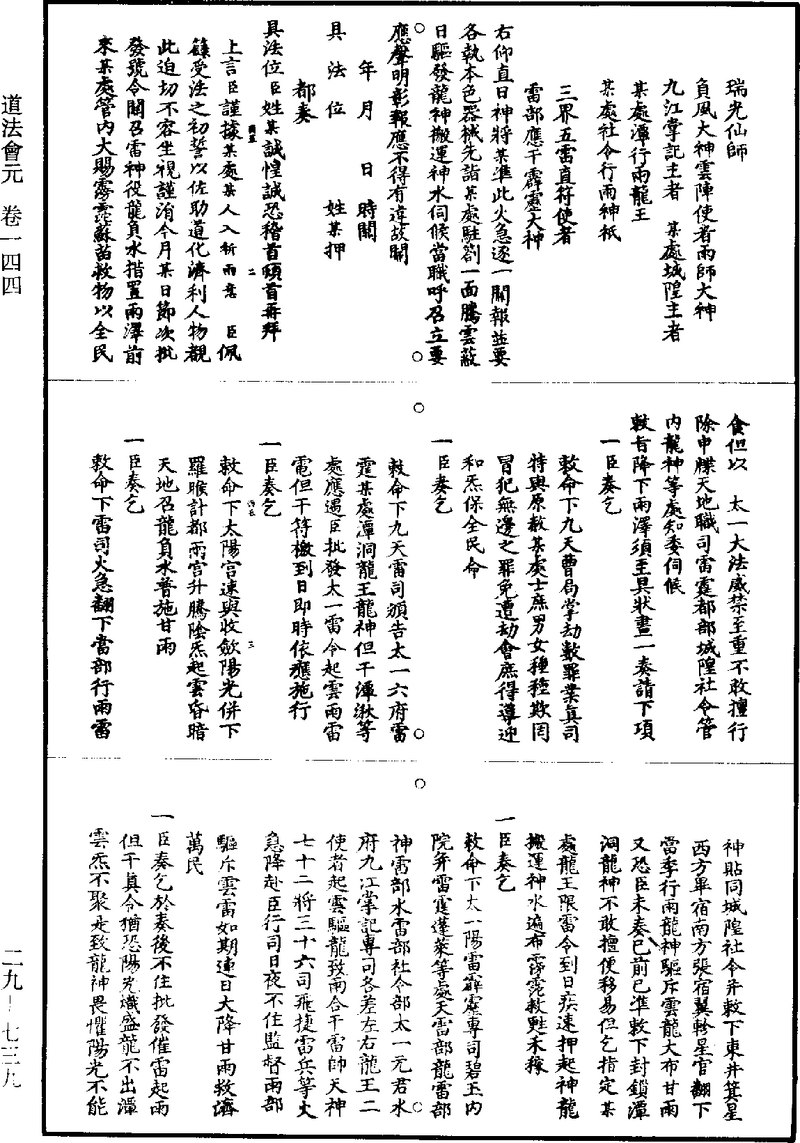 道法會元　卷一四四
二九—七三九
瑞光仙師
負風大神雲陣使者雨師大神
九江掌記主者　某處城隍主者
某處潭行雨龍王
某處社令行雨神祇
三界五雷直符使者
雷部應干霹靂大神
右仰直日神將某準此火急逐一關報並要
各執本色器械先詣某處駐劄一面騰雲蔽
日驅發龍神搬運神水伺候當職呼召立要
應聲明彰報應不得有違故關
年　月　日　時關
具　法　位　　姓某押
都奏
具法位臣姓某誠惶誠恐稽首頓首再拜
上言臣謹據某處某人入祈雨意　臣佩
籙受法之初誓以佐助道化濟利人物覩
此迫切不容坐視謹涓今月某日節次批
發號令關召雷神役龍負水措置雨澤前
來某處管内大賜霶霈蘇苗救物以全民
食但以　太一大法威禁至重不敢擅行
除申牒天地職司雷霆都部城隍社令管
内龍神等處知委伺候
敕旨降下雨澤須至具狀畫一奏請下項
一臣奏乞
敕命下九天曹局掌劫數罪業真司
特與原赦某處士庶男女種種欺罔
冒犯無邊之罪免遭劫會庶得導迎
和炁保全民命
一臣奏乞
敕命下九天雷司頒告太一六府雷
霆某處潭洞龍王龍神但干潭湫等
處應遇臣批發太一雷令起雲雨雷
電但干符檄到日即時依應施行
一臣奏乞
敕命下太陽宮速與收斂陽光併下
羅睺計都兩宮升騰陰炁起雲昏暗
天地召龍負水普施甘雨
一臣奏乞
敕命下雷司火急翻下當部行雨雷
神貼同城隍社令并敕下東井箕星
西方畢宿南方張宿翼軫星官翻下
當季行雨龍神驅斥雲龍大布甘雨
又恐臣未奏已前已準敕下封鎖潭
洞龍神不敢擅便移易但乞指定某
處龍王限雷令到日疾速押起神龍
搬運神水遍布霶霈救甦禾稼
一臣奏乞
敕命下太一陽雷霹靂專司碧玉内
院并雷霆蓬萊等處天雷部龍雷部
神雷部水雷部社令部太一元君水
府九江掌記專司各差左右龍王二
使者起雲驅龍致雨合干雷師天神
七十二將三十六司飛捷雷兵等火
急降赴臣行司日夜不住監督雨部
驅斥雲雷如期連日大降甘雨救濟
萬民
一臣奏乞於奏後不住批發催雷起雨
但干真令猶恐陽光熾盛龍不出潭
雲炁不聚是致龍神畏懼陽光不能